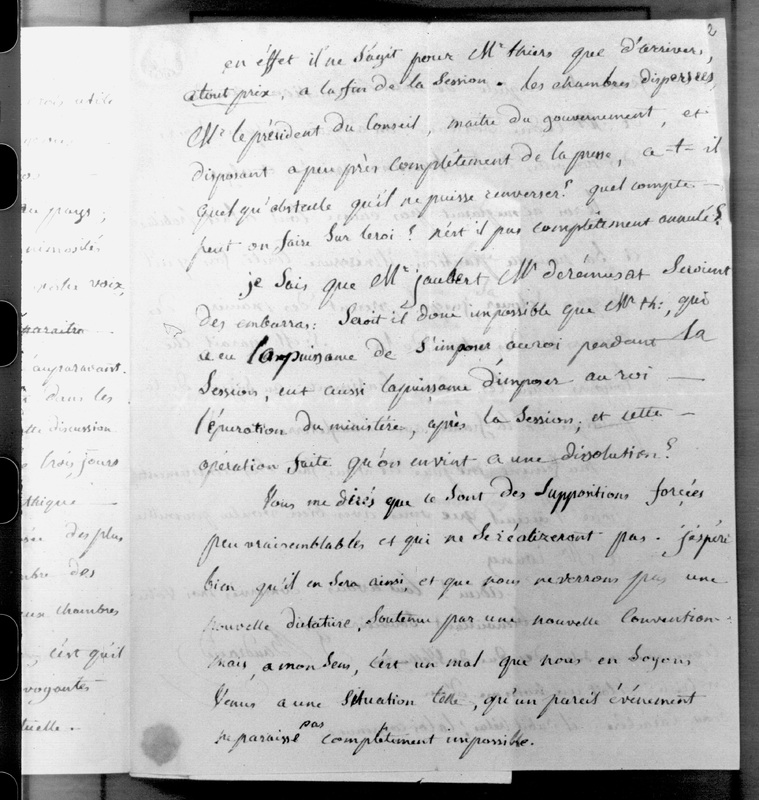 2
en éffet il ne s'agit pour Mr thiers que d'arriver,
atout prix, a la fin de la Session. les chambres dispersées,
Mr le président du Conseil, maitre du gouvernement, et
disposant apeuprès complêtement de la presse, a=t=il
quelqu'obstacle qu'il ne puisse renverser? quel compte
peut on faire sur leroi? n'est il pas complêtement annulé?
je sais que Mr jaubert Mr derémusat seroient
des embarras: seroit il donc impossible que Mr th:, qui
a eu lapuissance de s'imposer auroi pendant la
Session, eut aussi lapuissance d'imposer au roi
l'épuration du ministère, après la Session; et cette
opération faite qu'on en vint a une dissolution?
Vous me dirés que ce sont des suppositions forcées
peu vraisemblables et qui ne se réalizeront pas. j'éspère
bien qu'il en sera ainsi et que nous ne verrons pas une
nouvelle dictature, soutenue par une nouvelle Convention.
mais, a mon sens, c'est un mal que nous en soyons
venus a une situation telle, qu'un pareil événement
ne paraisse pas complêtement impossible.
utile
du pays;
voix,
auparavant.
dans les
discussion
trois jours
des plus
des
chambres
c'est qu'il